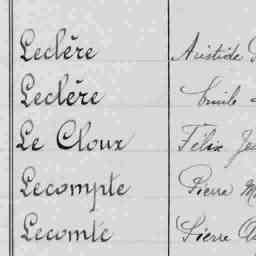 Leclère Aristide
Leclère Emile
Le Cloux Félix
Lecompte Pierre
Lecomte Pierre